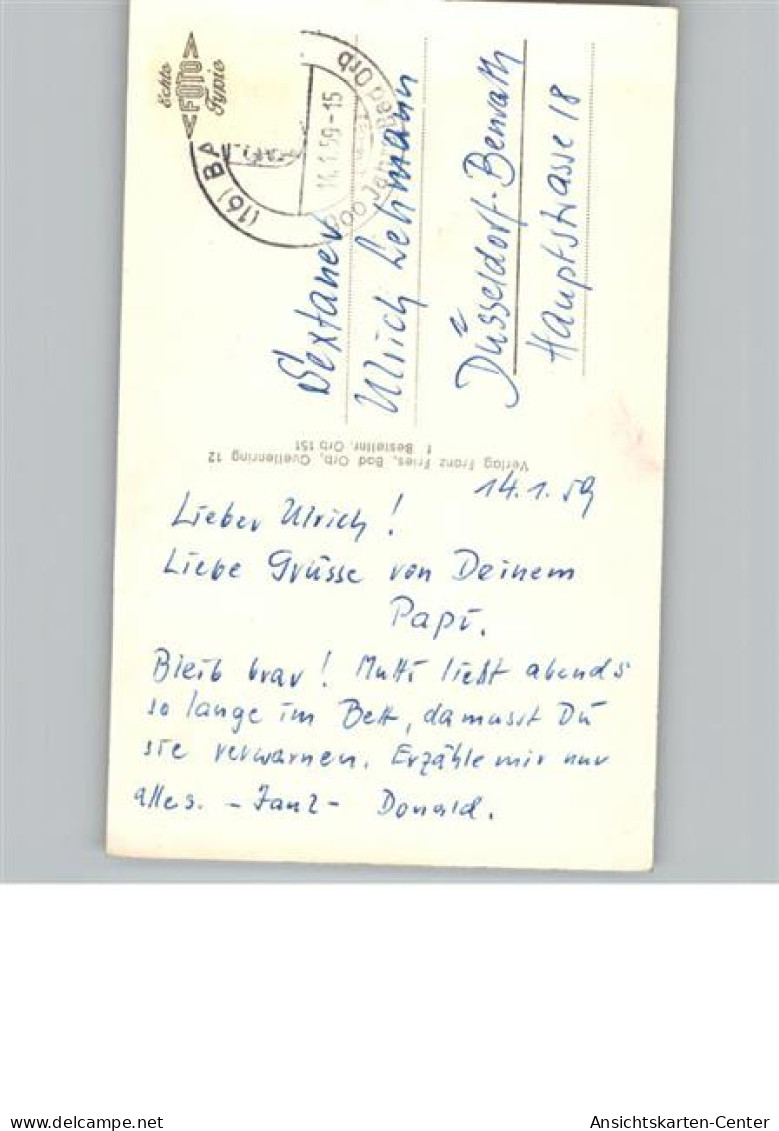 14.1.59
Lieber Ulrich!
Liebe Grüsse von Deinem
Papi.
Bleib brav! Mutti ließt abends
so lange im Bett, da musst Du
sie verwarnen. Erzähle mir nur
alles. - - Donald.
Verlag Franz Fries, Bad Orb, Quellenring 12
f Bestellnr. Orb 151
Echte
FOTO
Typie
(16) BA
14.1.59-15
Bad Orb
Sextaner
Ulrich Lehmann
Düsseldorf-Benrath
Hauptstrasse 18
delcampe.net
Ansichtskarten-Center